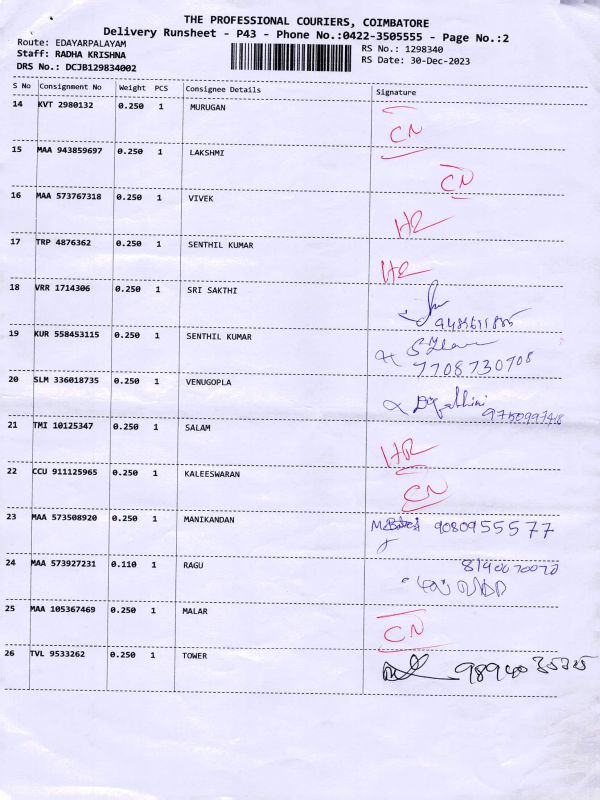 THE PROFESSIONAL COURIERS, COIMBATORE
Delivery Runsheet - P43 - Phone No.:0422-3505555 - Page No.:2
Route: EDAYARPALAYAM
RS No.: 1298340
Staff: RADHA KRISHNA
RS Date: 30-Dec-2023
DRS No.: DCJB129834002
S No Consignment No Weight PCS Consignee Details Signature
14 KVT 2980132 0.250 1 MURUGAN
CN
15 MAA 943859697 0.250 1 LAKSHMI
CN
16 MAA 573767318 0.250 1 VIVEK
HR
17 TRP 4876362 0.250 1 SENTHIL KUMAR
HR
18 VRR 1714306 0.250 1 SRI SAKTHI
19 KUR 558453115 0.250 1 SENTHIL KUMAR
7708730708
20 SLM 336018735 0.250 1 VENUGOPLA
21 TMI 10125347 0.250 1 SALAM
HR
22 CCU 911125965 0.250 1 KALEESWARAN
CN
23 MAA 573508920 0.250 1 MANIKANDAN
9080955577
24 MAA 573927231 0.110 1 RAGU
25 MAA 105367469 0.250 1 MALAR
CN
26 TVL 9533262 0.250 1 TOWER